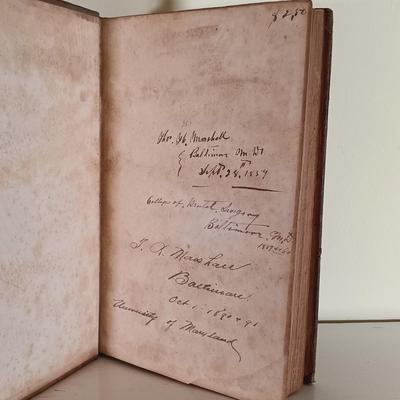 $2.50
Thos. H. Marshall
Baltimore Md
Sept. 28. 1859
College of Dental Surgery
Baltimore, Md
1859 & 60
T. A. Marshall
Baltimore.
Oct 1 - 1890 & 91
University of Maryland